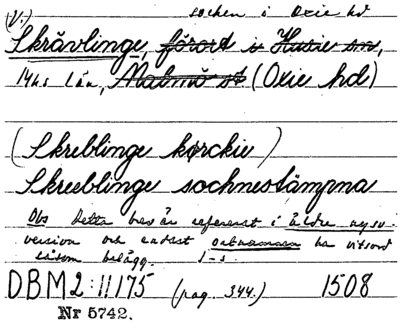 (V.) socken i Oxie hd
Skrävlinge, förort i Husie sn,
Mhs län, Malmö st (Oxie hd)
(Skreblinge kørckie)
Skreeblinge sochnestämpna
Obs Detta brev är refererat i äldre nysv
version och endast ortnamnen ha vitsord
såsom belägg. J-s.
DBM 2:II 175 (pag. 344.) 1508
Nr 5742.